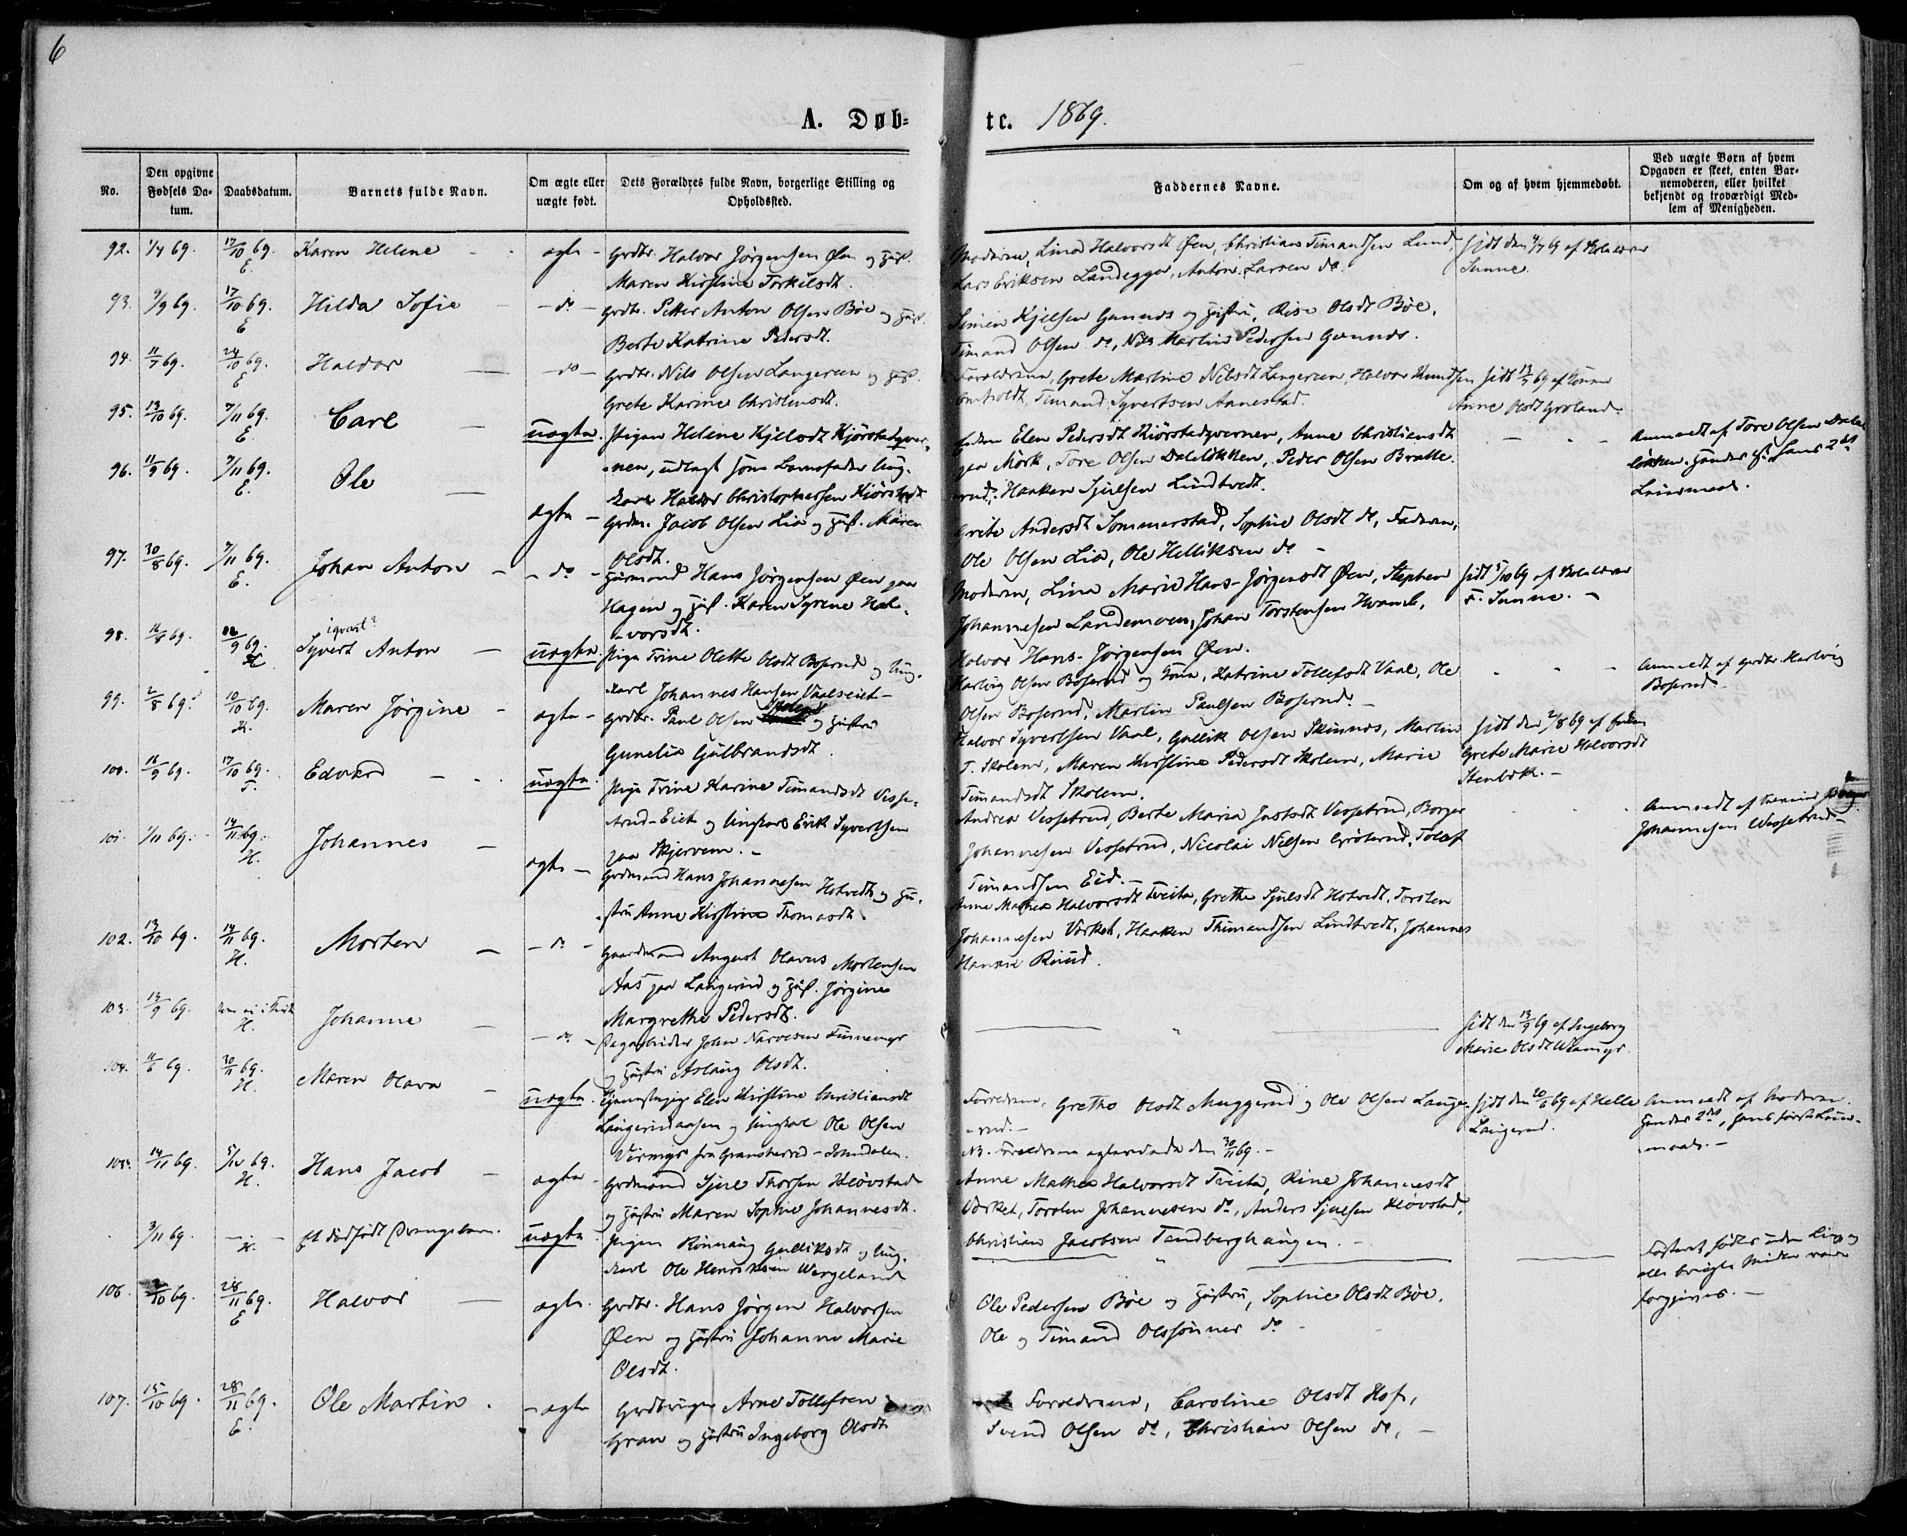 6
A. Døb-
te. 1869.
No.
Den opgivne Fødsels Da-tum.
Daabsdatum.
Barnets fulde Navn.
Om ægte eller uægte født.
Dets Forældres fulde Navn, borgerlige Stilling og Opholdssted.
Faddernes Navne.
Om og af hvem hjemmedøbt.
Ved uægte Børn af hvem Opgaven er skeet, enten Bar-nemoderen, eller hvilket bekjendt og troværdigt Med-lem af Menigheden.
92. 1/7 69. 17/10 69. E. Karen Helene - ægte - Grdbr. Halvor Jørgensen Øen og Hust.
Maren Kirstine Torkilsdt.
Moderen, Lina Halvorsdt Øen, Christian Timandsen Lund,
Lars Eriksen Landegga, Anton Larsen do.
93. 9/9 69. 17/10 69. E Hilda Sofie - do - Grdbr. Petter Anton Olsen Bøe og Hust.
Berte Katrine Pedersdt.
Simen Kjelsen Gunnes og Hustru, Rise Olsdt Bøe,
Timand Olsen do, Nils Martin Pedersen Gunnes.
94. 11/7 69. 24/10 69. E Haldor - do - Grdbr. Nils Olsen Langereen og Hust.
Grete Karine Christensdt.
Forældrene, Grete Martine Nilsdt Langereen, Halvor Knudsen
Timand Syvertsen Aanestad.
Anne Olsdt Groland.
95. 13/10 69. 7/11 69. E. Carl - uægte. Pigen Helene Kjelsdt Kjørstadqver-
nen, udlagt som Barnefader Ung-
karl Halvor Christophersen Kjørstad
Elen Pedersdt Kiørstadqvernen, Anne Christiansdt
paa Mørk, Tore Olsen Daleløkken, Peder Olsen Bratte-
rud, Haaken Sjulsen Lindtvedt.
Anmeldt af Tore Olsen Dale-
løkken.
Leiermaal.
96. 11/9 69. 7/11 69. E. Ole - ægte - Grdm. Jacob Olsen Lia og Hust. Maren
Olsdt.
Grete Andersdt Sommerstad, Sophie Olsdt do, Faderen,
Ole Olsen Lia, Ole Helliksen do -
97. 30/8 69. 7/11 69. E. Johan Anton - do - Hans Jørgensen Øen paa
Hagen og Hust. Karen Syrene Hal-
vorsdt.
Moderen, Lina Marie Hans-Jørgensdt Øen, Stephen
Johannesen Landemoen, Johan Torstensen
Halvor Hans-Jørgensen Øen.
98. 11/8 69. 12/9 69. H Syvert Anton - uægte. Pige Trine Olette Olsdt Boserud og Ung-
karl Johannes Hansen
Hartvig Olsen Boserud og Kone, Katrine Tollefsdt Vaal, Ole
Olsen Boserud, Martin Paulsen Boserud. -
Anmeldt af Grdbr. Hartvig
Boserud -
99. 2/8 69. 10/10 69. H. Maren Jørgine - ægte - Grdbr. Paul Olsen Skolem og Hustru
Gunelia Gulbrandsdt.
Halvor Syvertsen Vaal, Gullik Olsen Skinnes, Martin
T. Skolem, Maren Kirstine Pedersdt Skolem, Marie
Timandsdt Skolem.
Hjdt den 2/8 69 af
Grete Marie Halvorsdt
Stenbek. -
100. 11/9 69. 17/10 69. T. Edvard - uægte. Pige Trine Karine Timandsdt Vesse-
trud-Eiet og Ungkarl Erik Syvertsen
paa Skjervem. -
Andrea Vessetrud, Berte Maria Justsdt Vessetrud, Borger
Johannesen Vessetrud, Nicolai Nielsen Grøterud, Tollef
Timandsen Eid. -
Johannesen Wessetrud -
101. 1/11 69. 14/11 69. H. Johannes - ægte - Grdmand Hans Johannesen Hotvedt og Hu-
stru Anne Kirstine Thomasdt.
Anne Mathea Halvorsdt Tveita, Grethe Sjulsdt Hotvedt, Torsten
Johannesen Værket, Haaken Thimandsen Lindtvedt, Johannes
Hansen Ruud.
102. 13/10 69. 14/11 69. H. Morten - do - Gaardmand August Olavus Mortensen
Aas paa Langerud og Hust. Jørgine
Margrethe Pedersdt.
103. 13/9 69. H. Johanne - do - John Narvesen
og Hustru Aslaug Olsdt.
Hjdt den 13/9 69 af Ingeborg
Marie Olsdt
104. 11/6 69. 30/11 69. H. Maren Olava - uægte. Tjenestepige Elen Kirstine Christiansdt
Langerudaasen og Ungkarl Ole Olsen
Virmyr fra Gransherred - Jondalen.
Forældrene, Grethe Olsdt Muggerud og Ole Olsen Lange-
rud. -
NB. Forældrene ægteviede den 30/11 69. -
Hjdt den 20/6 69 af Helle
Langerud.
Anmeldt af Moderen.
Hendes 2det, hans første Leier-
maal. -
105. 14/11 69. 5/12 69. H. Hans Jacob - ægte - Grdmand Sjul Thorsen Kløvstad
og Hustru Maren Sophie Johannesdt.
Anne Mathea Halvorsdt Tveita, Rine Johannesdt
Værket, Torsten Johannesen do, Anders Sjulsen Kløvstad,
Christian Jacobsen Tandberghaugen. -
3/11 69. - H. Et dødfødt Drengebarn. uægte Pigen Rønnaug Gulliksdt og Ung-
karl Ole Henriksen Wergeland
Fosteret fødtes uden Liv og
alle brugte Midler vare
forgjæves. -
106. 2/10 69. 28/11 69. E Halvor - ægte. Grdbr. Hans Jørgen Halvorsen
Øen og Hustru Johanne Marie
Olsdt.
Ole Pedersen Bøe og Hustru, Sophie Olsdt Bøe,
Ole og Timand Olssønner do -
107. 15/10 69. 28/11 69. E. Ole Martin. - ægte Grdbruger Arne Tollefsen
Gran og Hustru Ingeborg Olsdt
Forældrene, Caroline Olsdt Hof,
Svend Olsen do, Christian Olsen do, -